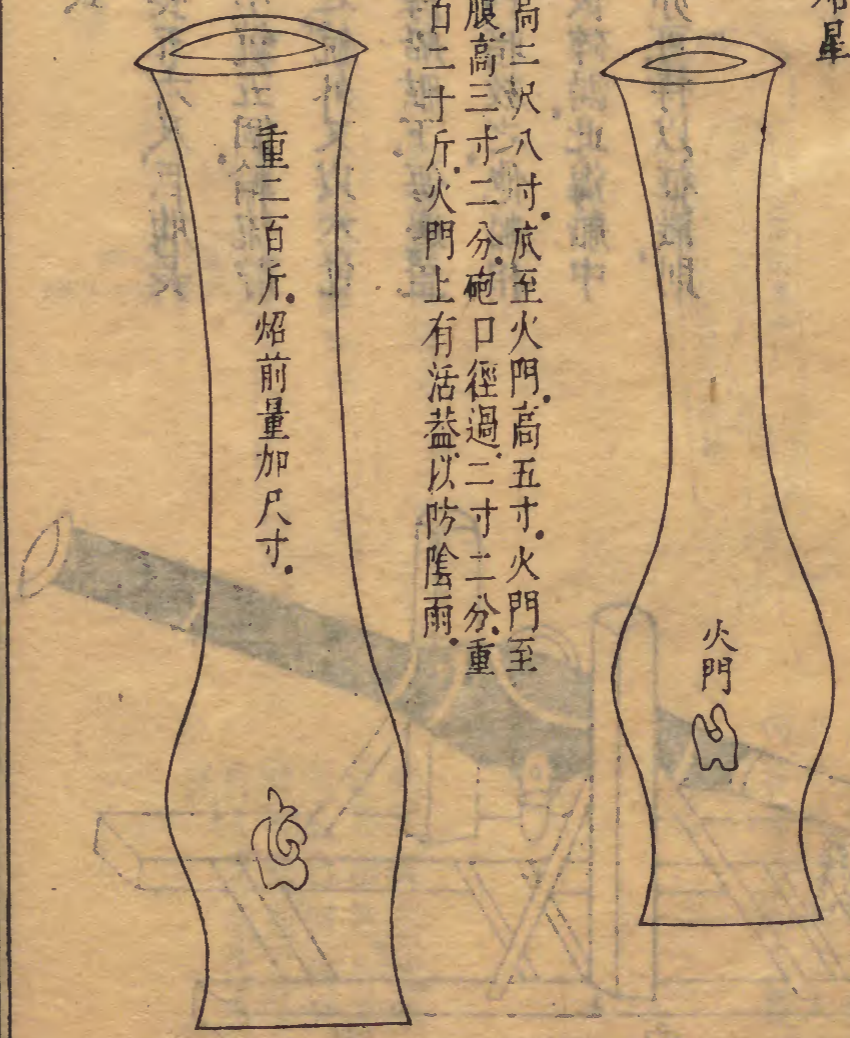 星
火門
高二尺八寸。底至火門。高五寸。火門至
腹高三寸二分。砲口徑過。二寸二分。重
百二十斤。火門上有活葢。以防陰雨。
重二百斤。炤前量加尺寸。